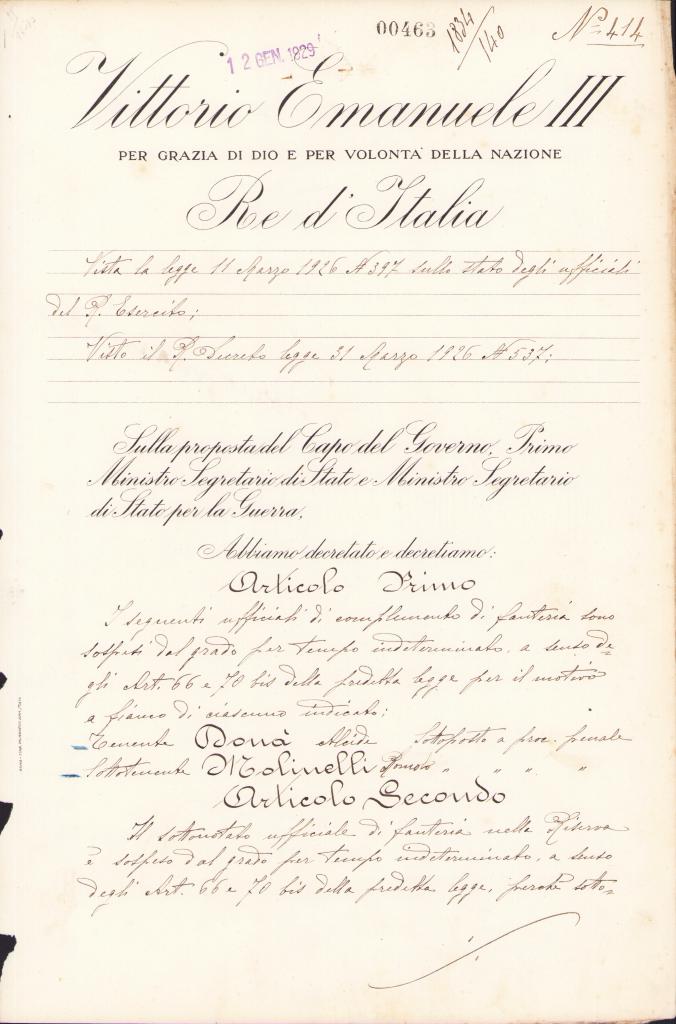 00463 1834/140 Nº 414
12 GEN. 1829
Vittorio Emanuele III
PER GRAZIA DI DIO E PER VOLONTA' DELLA NAZIONE
Re d'Italia
Vista la legge 11 Marzo 1926 N 397 sullo stato degli ufficiali
del R. Esercito;
Visto il R. Decreto legge 31 Marzo 1926 N 537;
Sulla proposta del Capo del Governo, Primo
Ministro Segretario di Stato e Ministro Segretario
di Stato per la Guerra,
Abbiamo decretato e decretiamo:
Articolo Primo
I seguenti ufficiali di complemento di fanteria sono
sospesi dal grado per tempo indeterminato, a senso de=
gli Art. 66 e 70 bis della predetta legge per il motivo
a fianco di ciascuno indicato:
Tenente Donà Alcide Sottoposto a proc. penale
Sottotenente Molinelli Romolo " " " "
Articolo Secondo
Il sottonotato ufficiale di fanteria nella Riserva
è sospeso dal grado per tempo indeterminato, a senso
degli Art. 66 e 70 bis della predetta legge, perchè sotto=